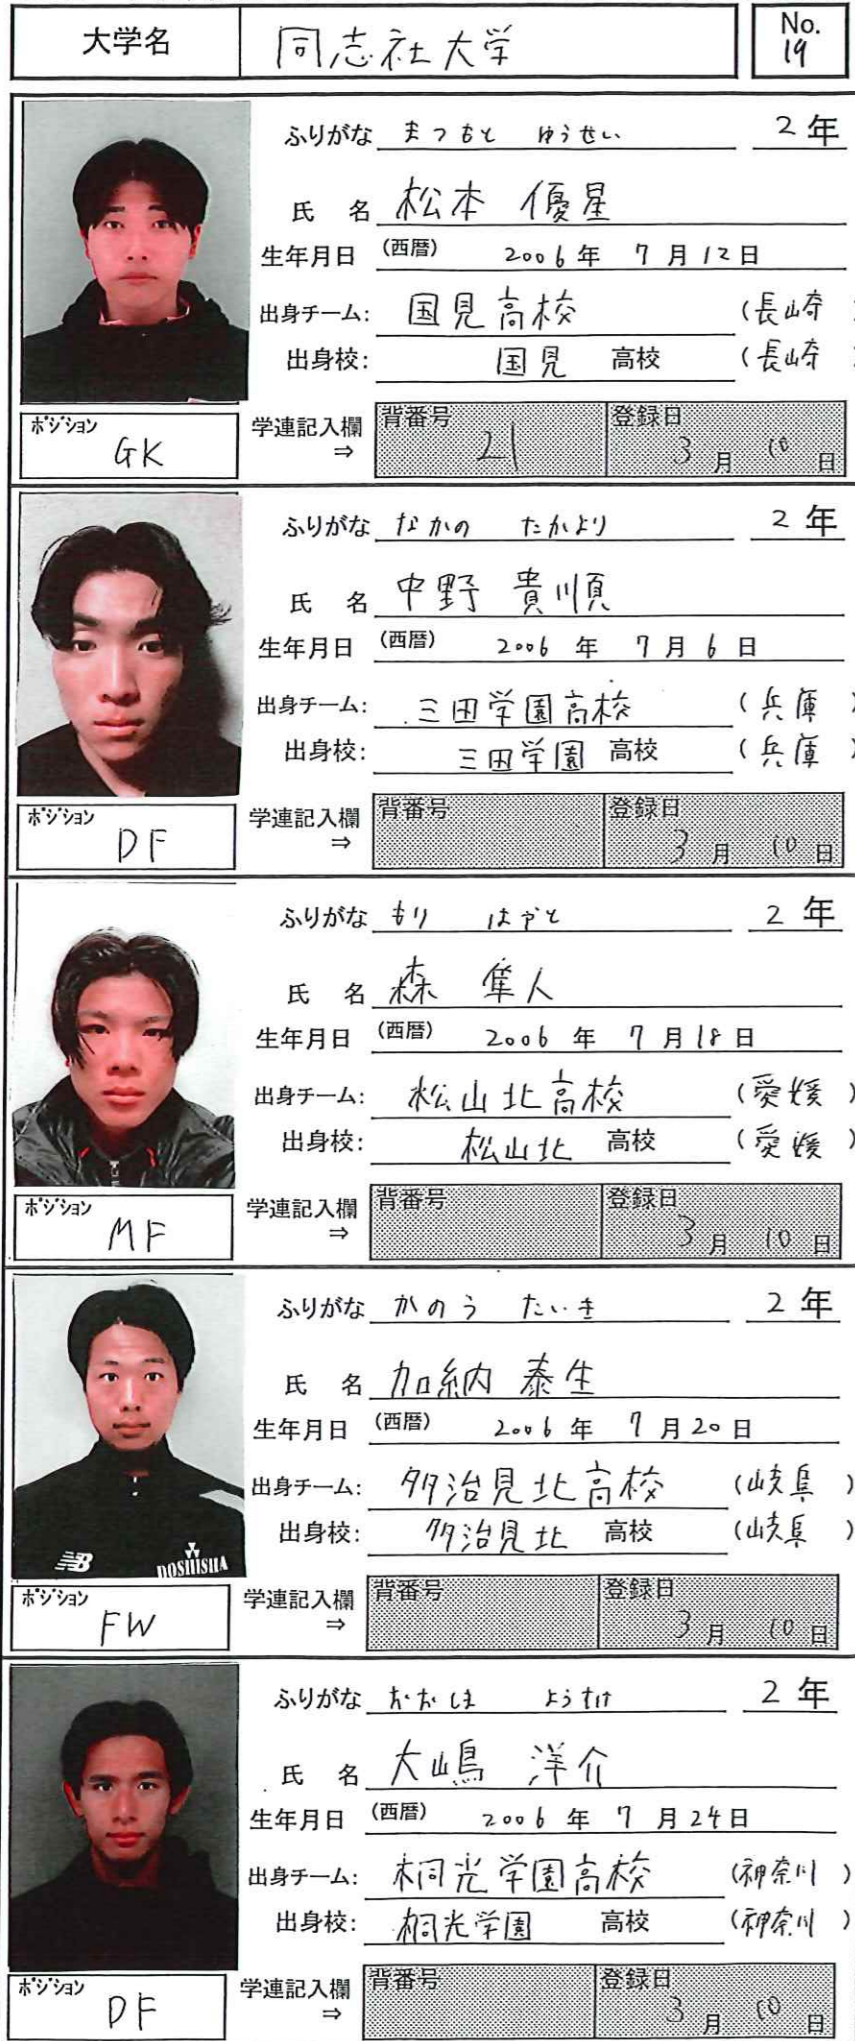 大学名 同志社大学 No. 19
ふりがな まつもと ゆうせい 2年
氏 名 松本 優星
生年月日 (西暦) 2006年 7月12日
出身チーム: 国見高校 (長崎
出身校: 国見 高校 (長崎
ポジション GK 学連記入欄 ⇒ 背番号 21 登録日 3月 10日
ふりがな なかの たかより 2年
氏 名 中野 貴順
生年月日 (西暦) 2006年 7月6日
出身チーム: 三田学園高校 (兵庫)
出身校: 三田学園 高校 (兵庫)
ポジション DF 学連記入欄 ⇒ 背番号 登録日 3月 10日
ふりがな もり はやと 2年
氏 名 森 隼人
生年月日 (西暦) 2006年 7月18日
出身チーム: 松山北高校 (愛媛)
出身校: 松山北 高校 (愛媛)
ポジション MF 学連記入欄 ⇒ 背番号 登録日 3月 10日
ふりがな かのう たいき 2年
氏 名 加納 泰生
生年月日 (西暦) 2006年 7月20日
出身チーム: 多治見北高校 (岐阜)
出身校: 多治見北 高校 (岐阜)
NB DOSHISHA
ポジション FW 学連記入欄 ⇒ 背番号 登録日 3月 10日
ふりがな おおしま ようすけ 2年
氏 名 大嶋 洋介
生年月日 (西暦) 2006年 7月24日
出身チーム: 桐光学園高校 (神奈川)
出身校: 桐光学園 高校 (神奈川)
ポジション DF 学連記入欄 ⇒ 背番号 登録日 3月 10日